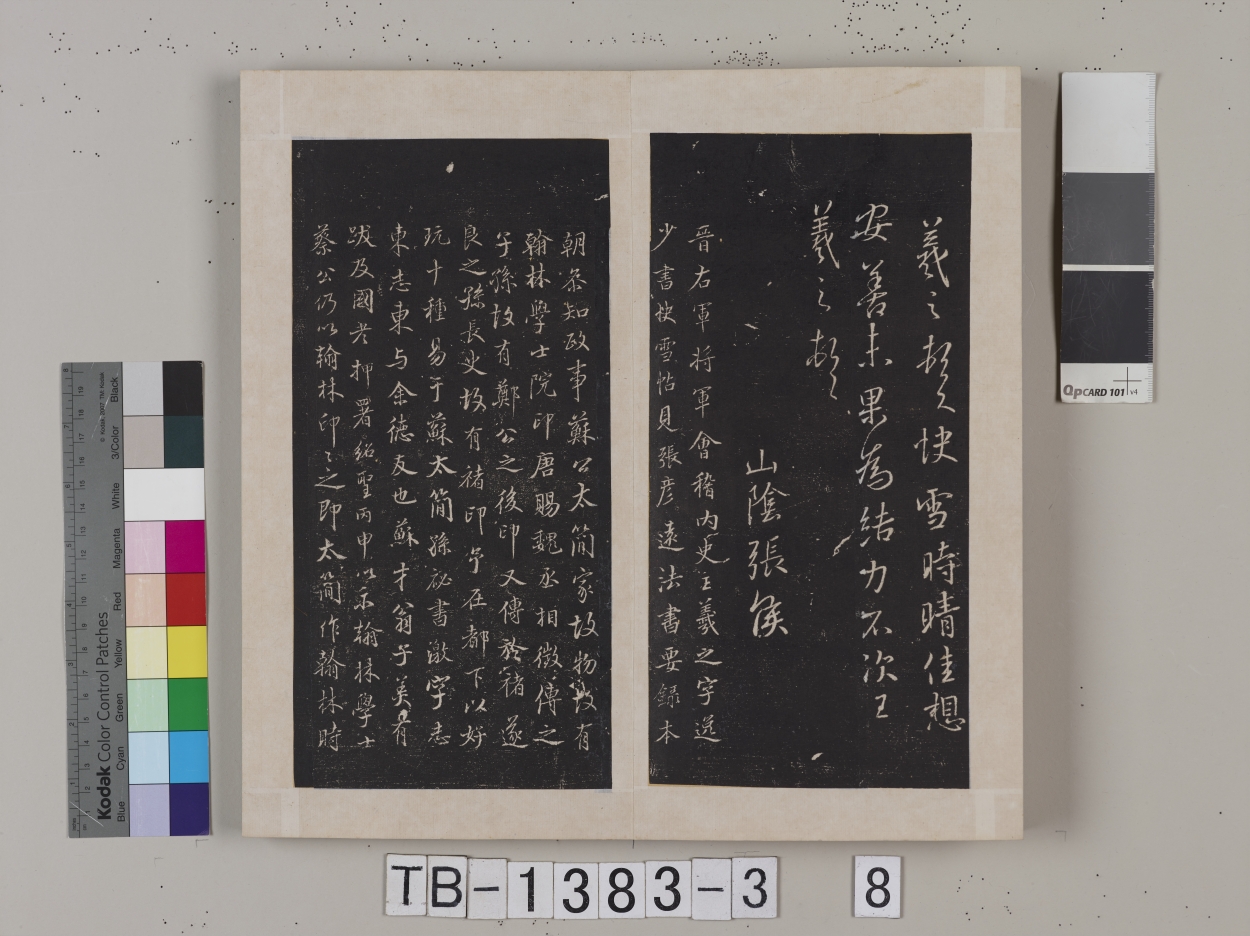 羲之頓首快雪時晴佳想
安善未果為結力不次王
羲之頓首
山陰張侯
晉右軍將軍會稽內史王羲之字逸
少書快雪帖見張彥遠法書要錄本
朝參知政事蘇公太簡家故物故有
翰林學士院印唐賜魏丞相徵傳之
子孫故有鄭公之後印又傳於褚遂
良之孫長史故有褚印予在都下以好
玩十種易于蘇太簡孫秘書激字志
東志東与余德友也蘇才翁子美有
跋及國老押署紹聖丙申以示翰林學士
蔡公仍以翰林印印之即太簡作翰林時
TB-1383-3 8
Kodak Color Control Patches
© Kodak, 2007 TM: Kodak
Blue Cyan Green Yellow Red Magenta White 3/Color Black
QPCARD 101 v4